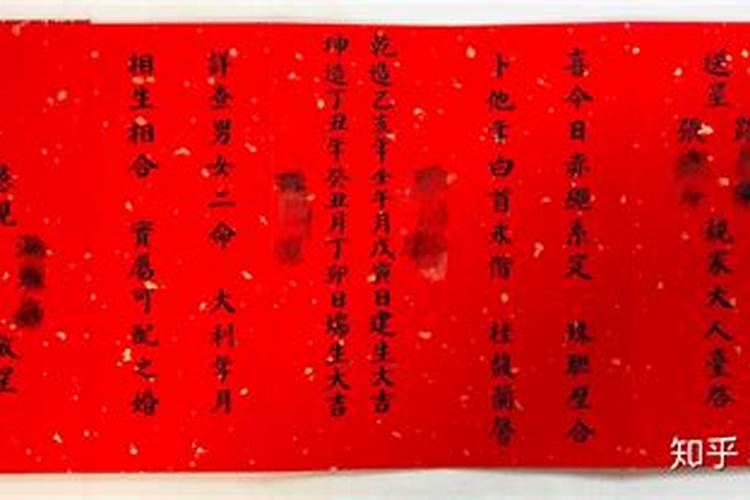 送呈 張 親家大人臺啓
喜今日赤繩系定 珠聯璧合
卜他年白首永偕 桂馥蘭馨
乾造乙亥年壬午月戊寅日建生大吉
坤造丁丑年癸丑月丁卯日端生大吉
詳查男女二命 大利年月
相生相合 實屬可配之婚
敬呈
知乎